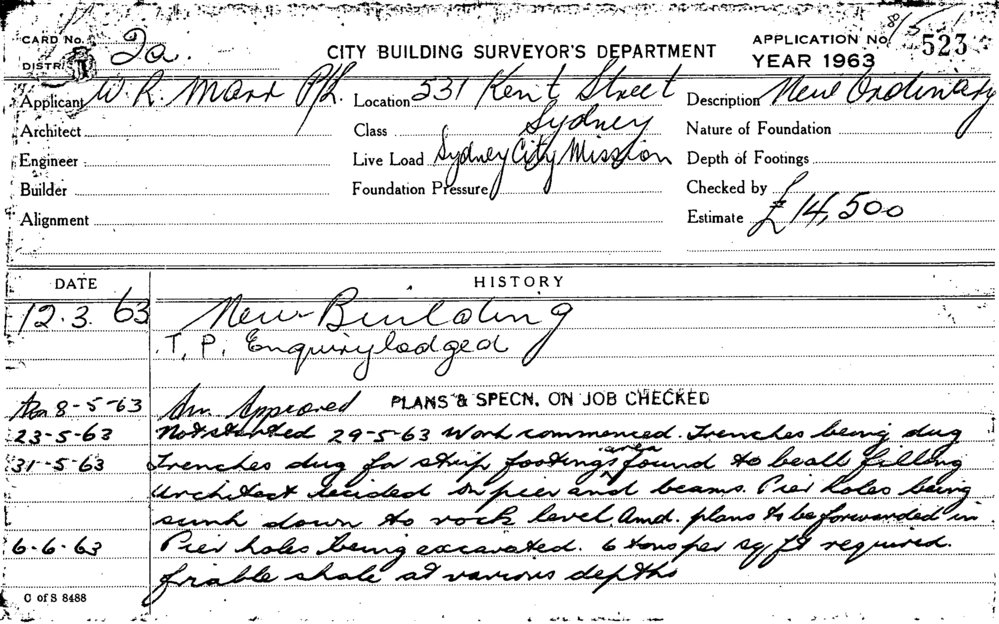 CARD No. 2a.
DISTR.
CITY BUILDING SURVEYOR'S DEPARTMENT
APPLICATION No. 523
YEAR 1963
Applicant W. R. Marr P/L. Location 531 Kent Street Description New Ordinary
Architect Class Sydney Nature of Foundation
Engineer Live Load Sydney City Mission Depth of Footings
Builder Foundation Pressure Checked by
Alignment Estimate £14,500
DATE HISTORY
12.3.63 New Building
T. P. Enquiry lodged
8-5-63 Approved PLANS & SPECN. ON JOB CHECKED
23-5-63 Not started 29-5-63 Work commenced. Trenches being dug
31-5-63 Trenches dug for strip footings area found to be all filling
Architect decided on pier and beams. Pier holes being
sunk down to rock level. Amd. plans to be forwarded in
6-6-63 Pier holes being excavated. 6 tons per sq ft required.
friable shale at various depths
C of S 8488